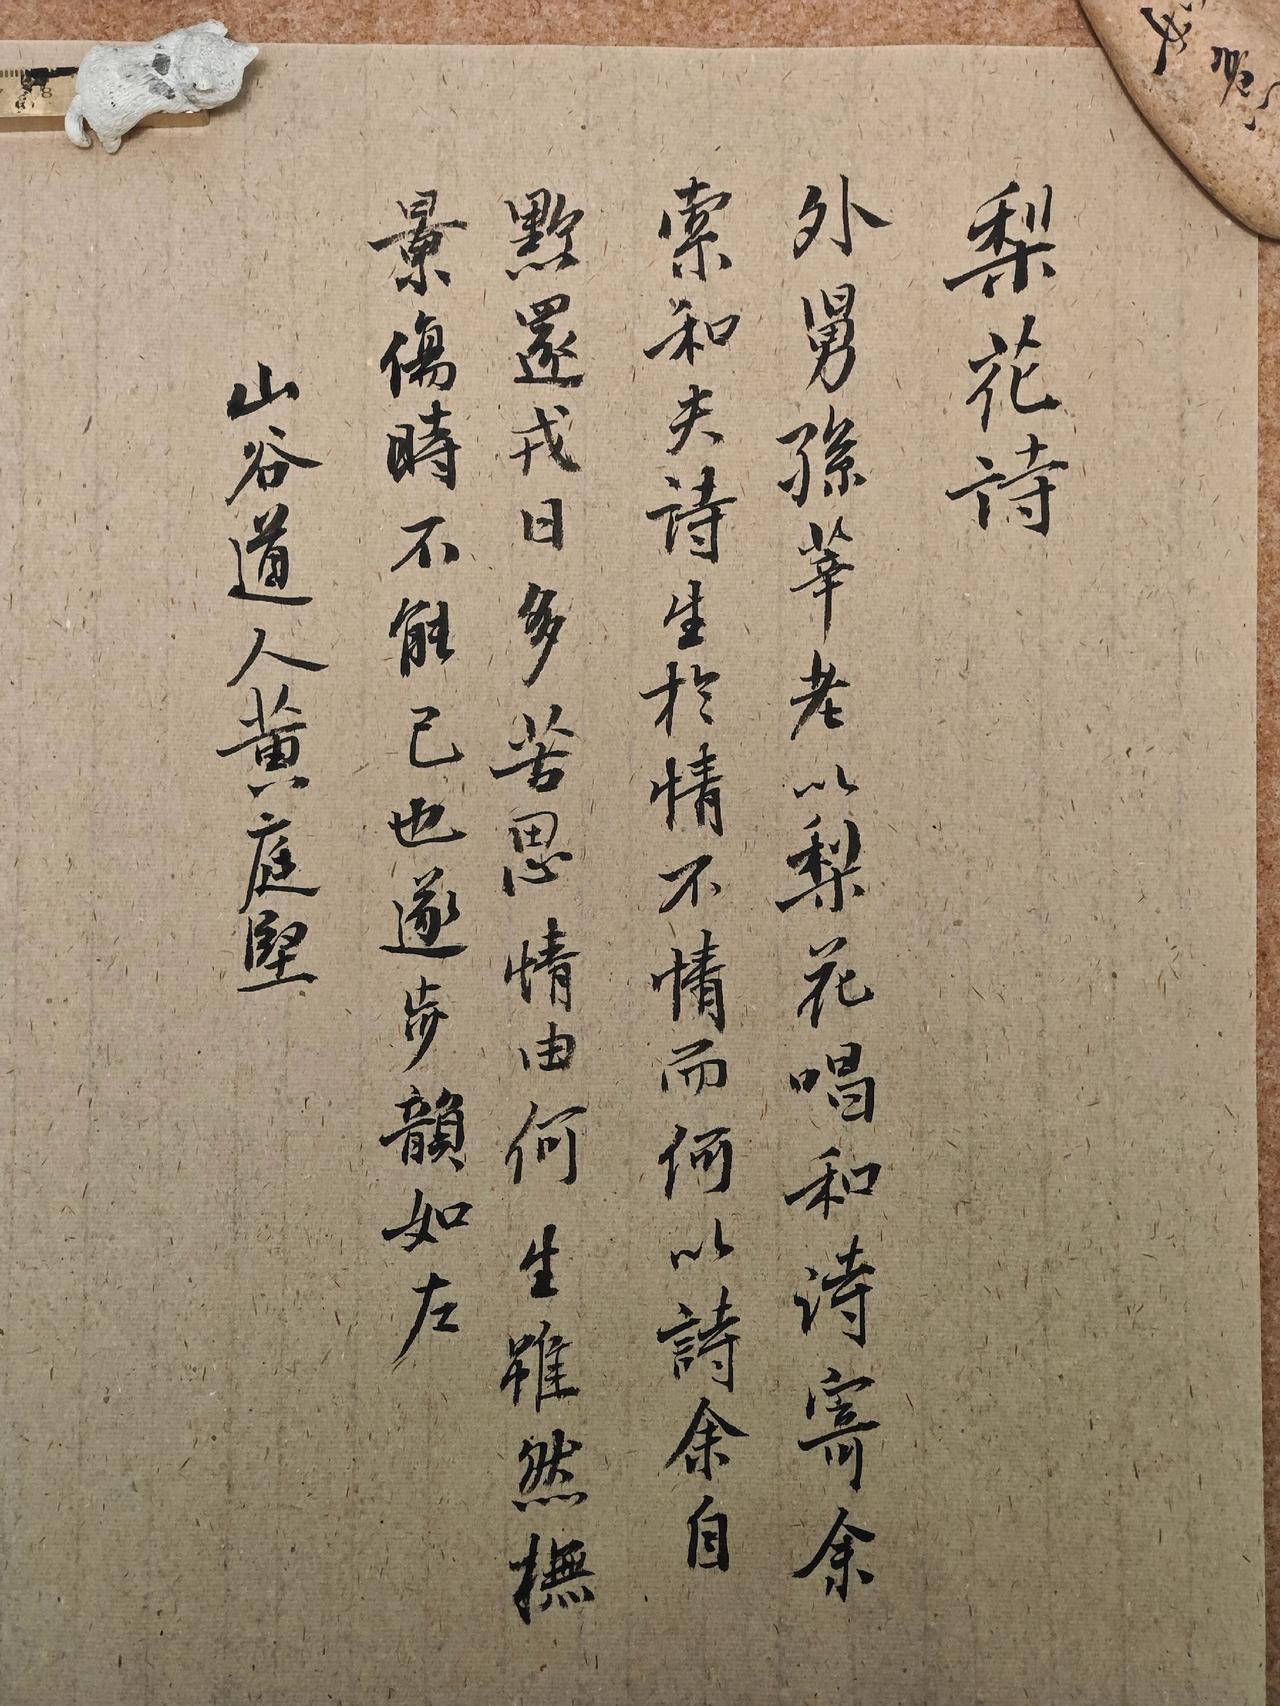 梨花詩
外舅孫莘老以梨花唱和詩寄余
索和夫詩生於情不情而何以詩余自
黔還戎日多苦思情由何生雖然撫
景傷時不能已也遂步韻如左
山谷道人黄庭堅